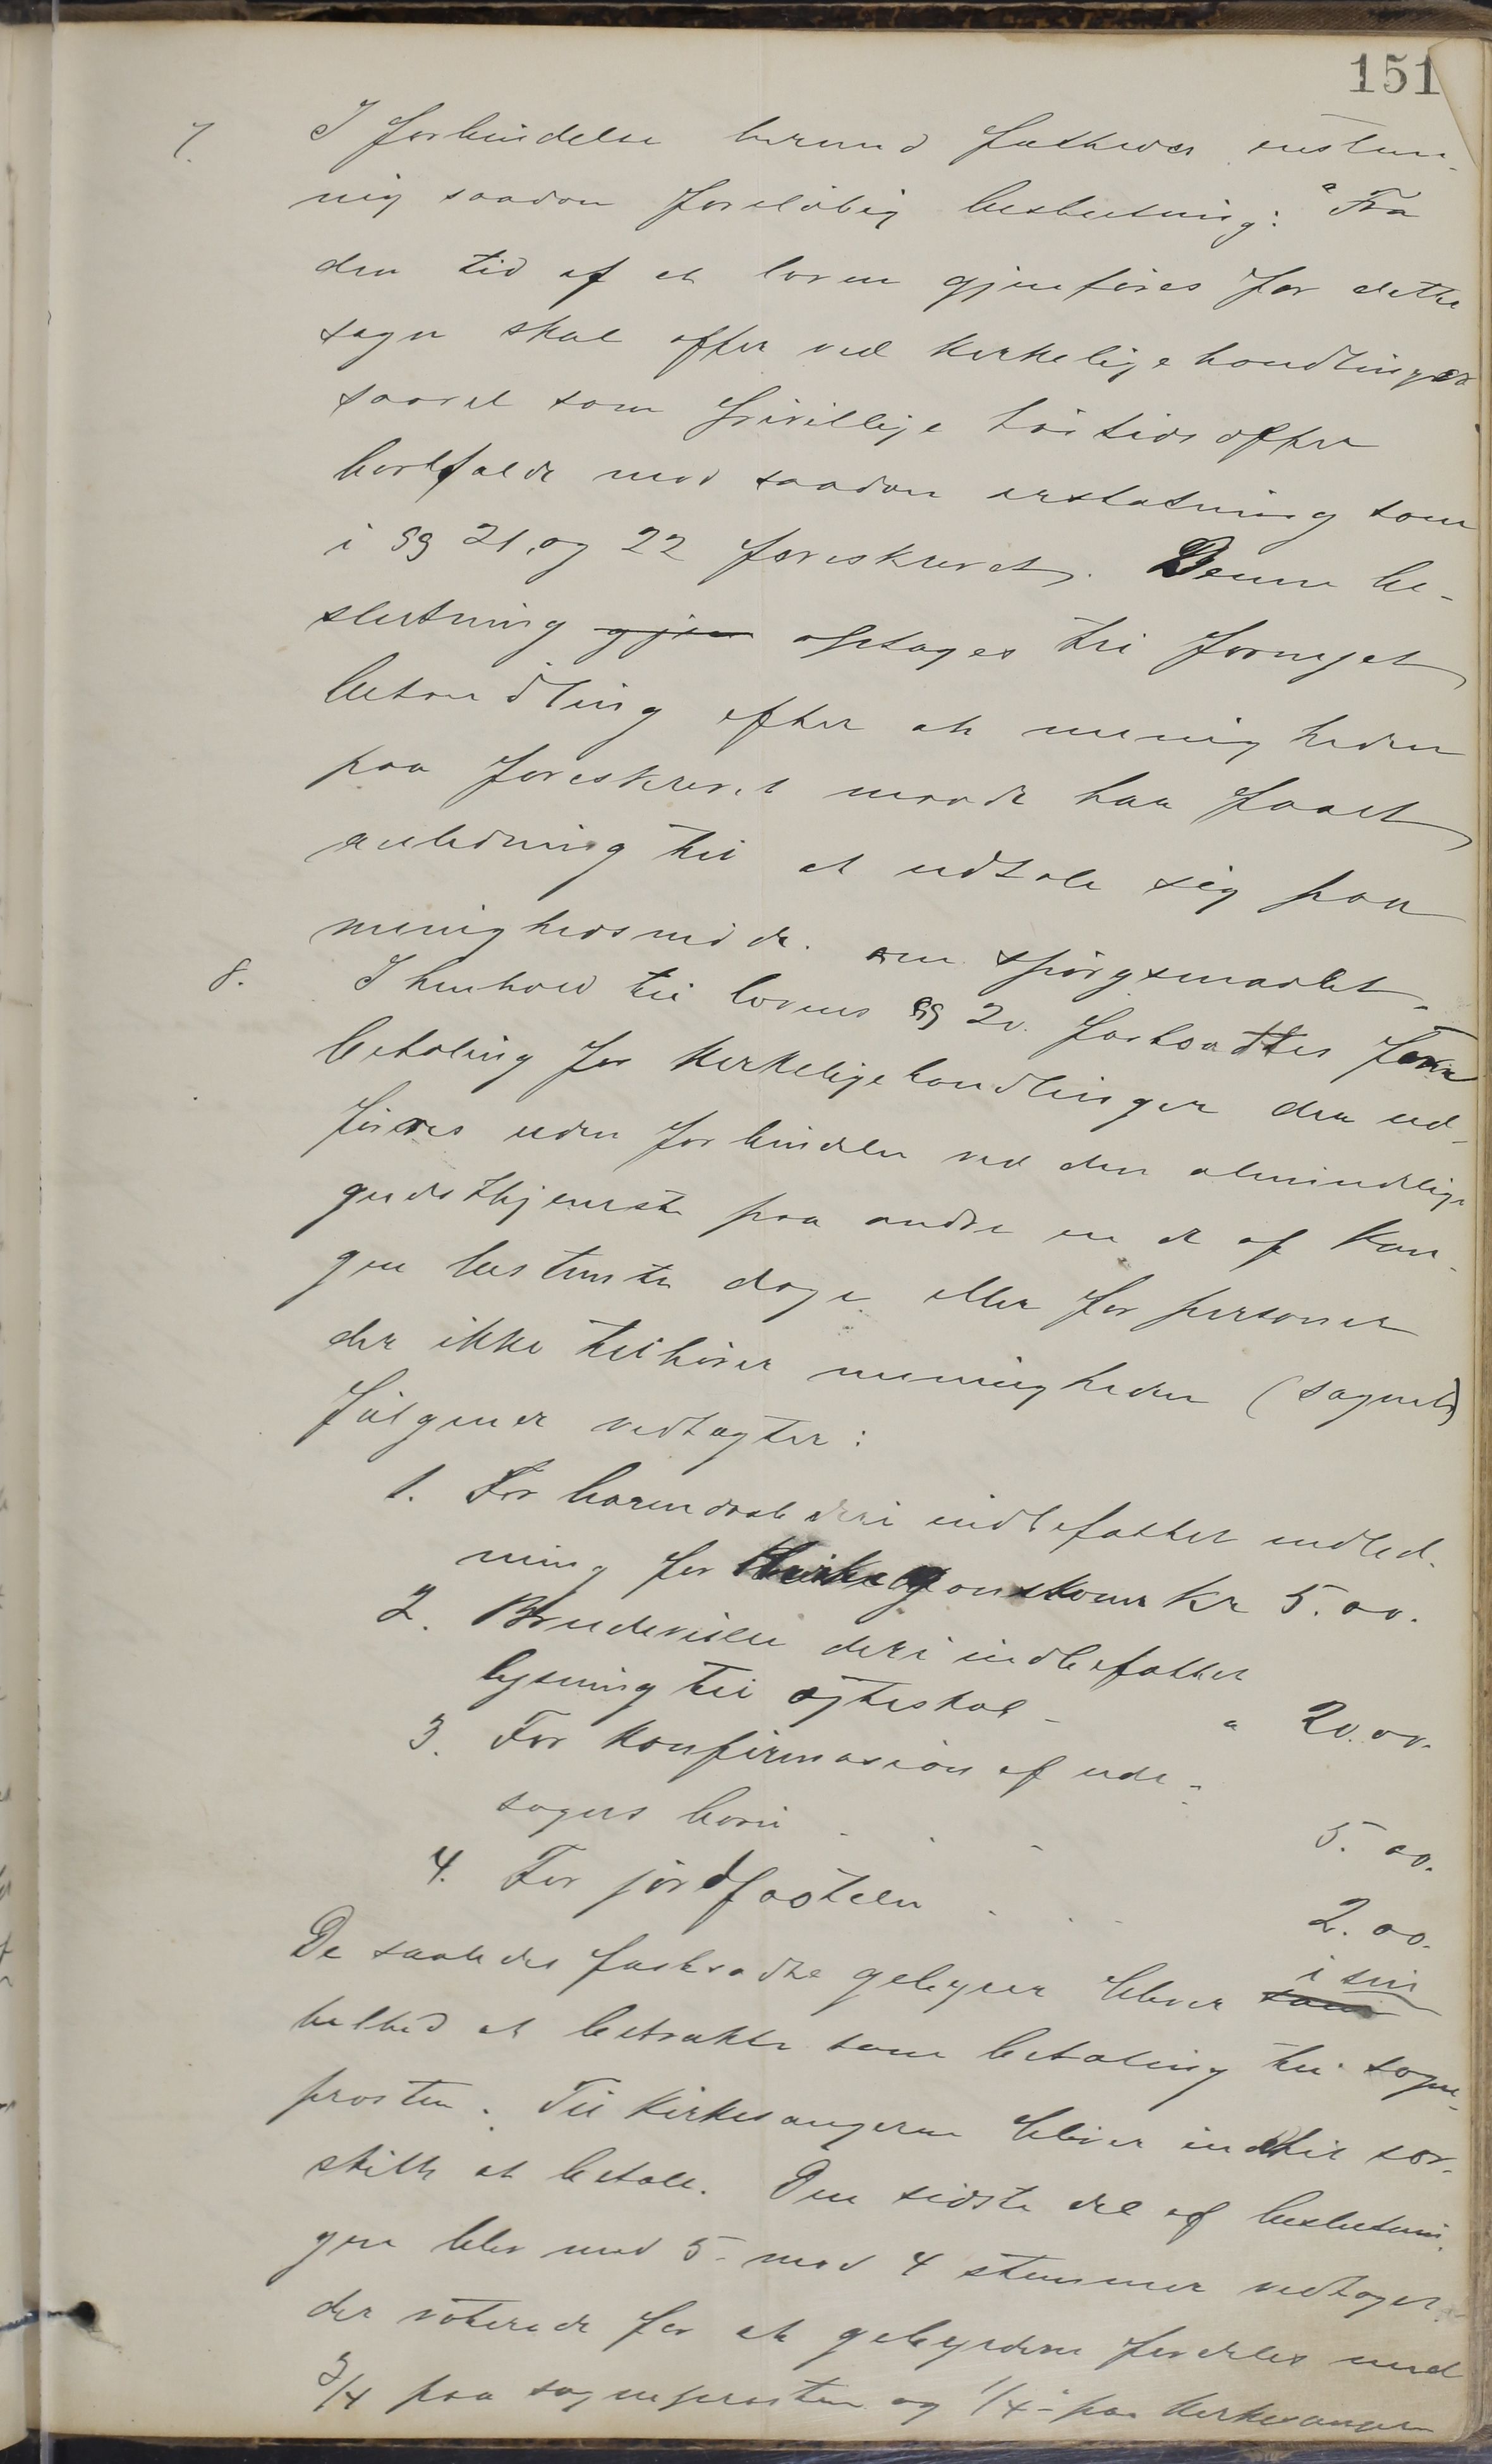 151
7. I forbindelse hermed fattedes enstem-
mig saadan foreløbig beslutning: "Fra
den tid af at loven gjenføres for dette
sogn skal offer ved kirkelige handlinger
saavel som frivillige høitidsoffer
bortfalde mod saadan erstatning som
i §§ 21, og 22 foreskrevet. Denne be-
slutning gjen optages til fornyet
behandling efter at menigheden
paa foreskrevet maade har faaet
anledning til at udtale sig paa
menighedsmøde. om spørgsmaalet.
8. I henhold til lovens §§ 20. fastsattes for
betaling for kirkelige handlinger der ud-
føres uden forbindelse ved den almindelige
gudsthjeneste paa andre en de af Kon-
gen bestemte dage eller for personer
der ikke tilhører menigheden (sognet)
følgende vedtagter:
1. For barnedaab deri indbefattet indled-
ning for kone Kr 5.00.
2. Brudevielse deri indbefattet
lysning til ægteskab - " 20.00.
3. For Konfirmasion af uden-
sogns børn - - - 5.00.
4. For jordfæstelse - - - 2.00.
De saaledes fastsadte gebyrer bliver som i sin
helhed at betrakte som betaling til sogne-
presten. Til Kirkesangeren bliver intet sær-
skilt at betale. Den sidste del af beslutnin-
gen blev med 5 mod 4 stemmer vedtaget.
der voterede for at gebyrderne fordeles med
3/4 paa sognepresten og 1/4 paa Kirkesangeren